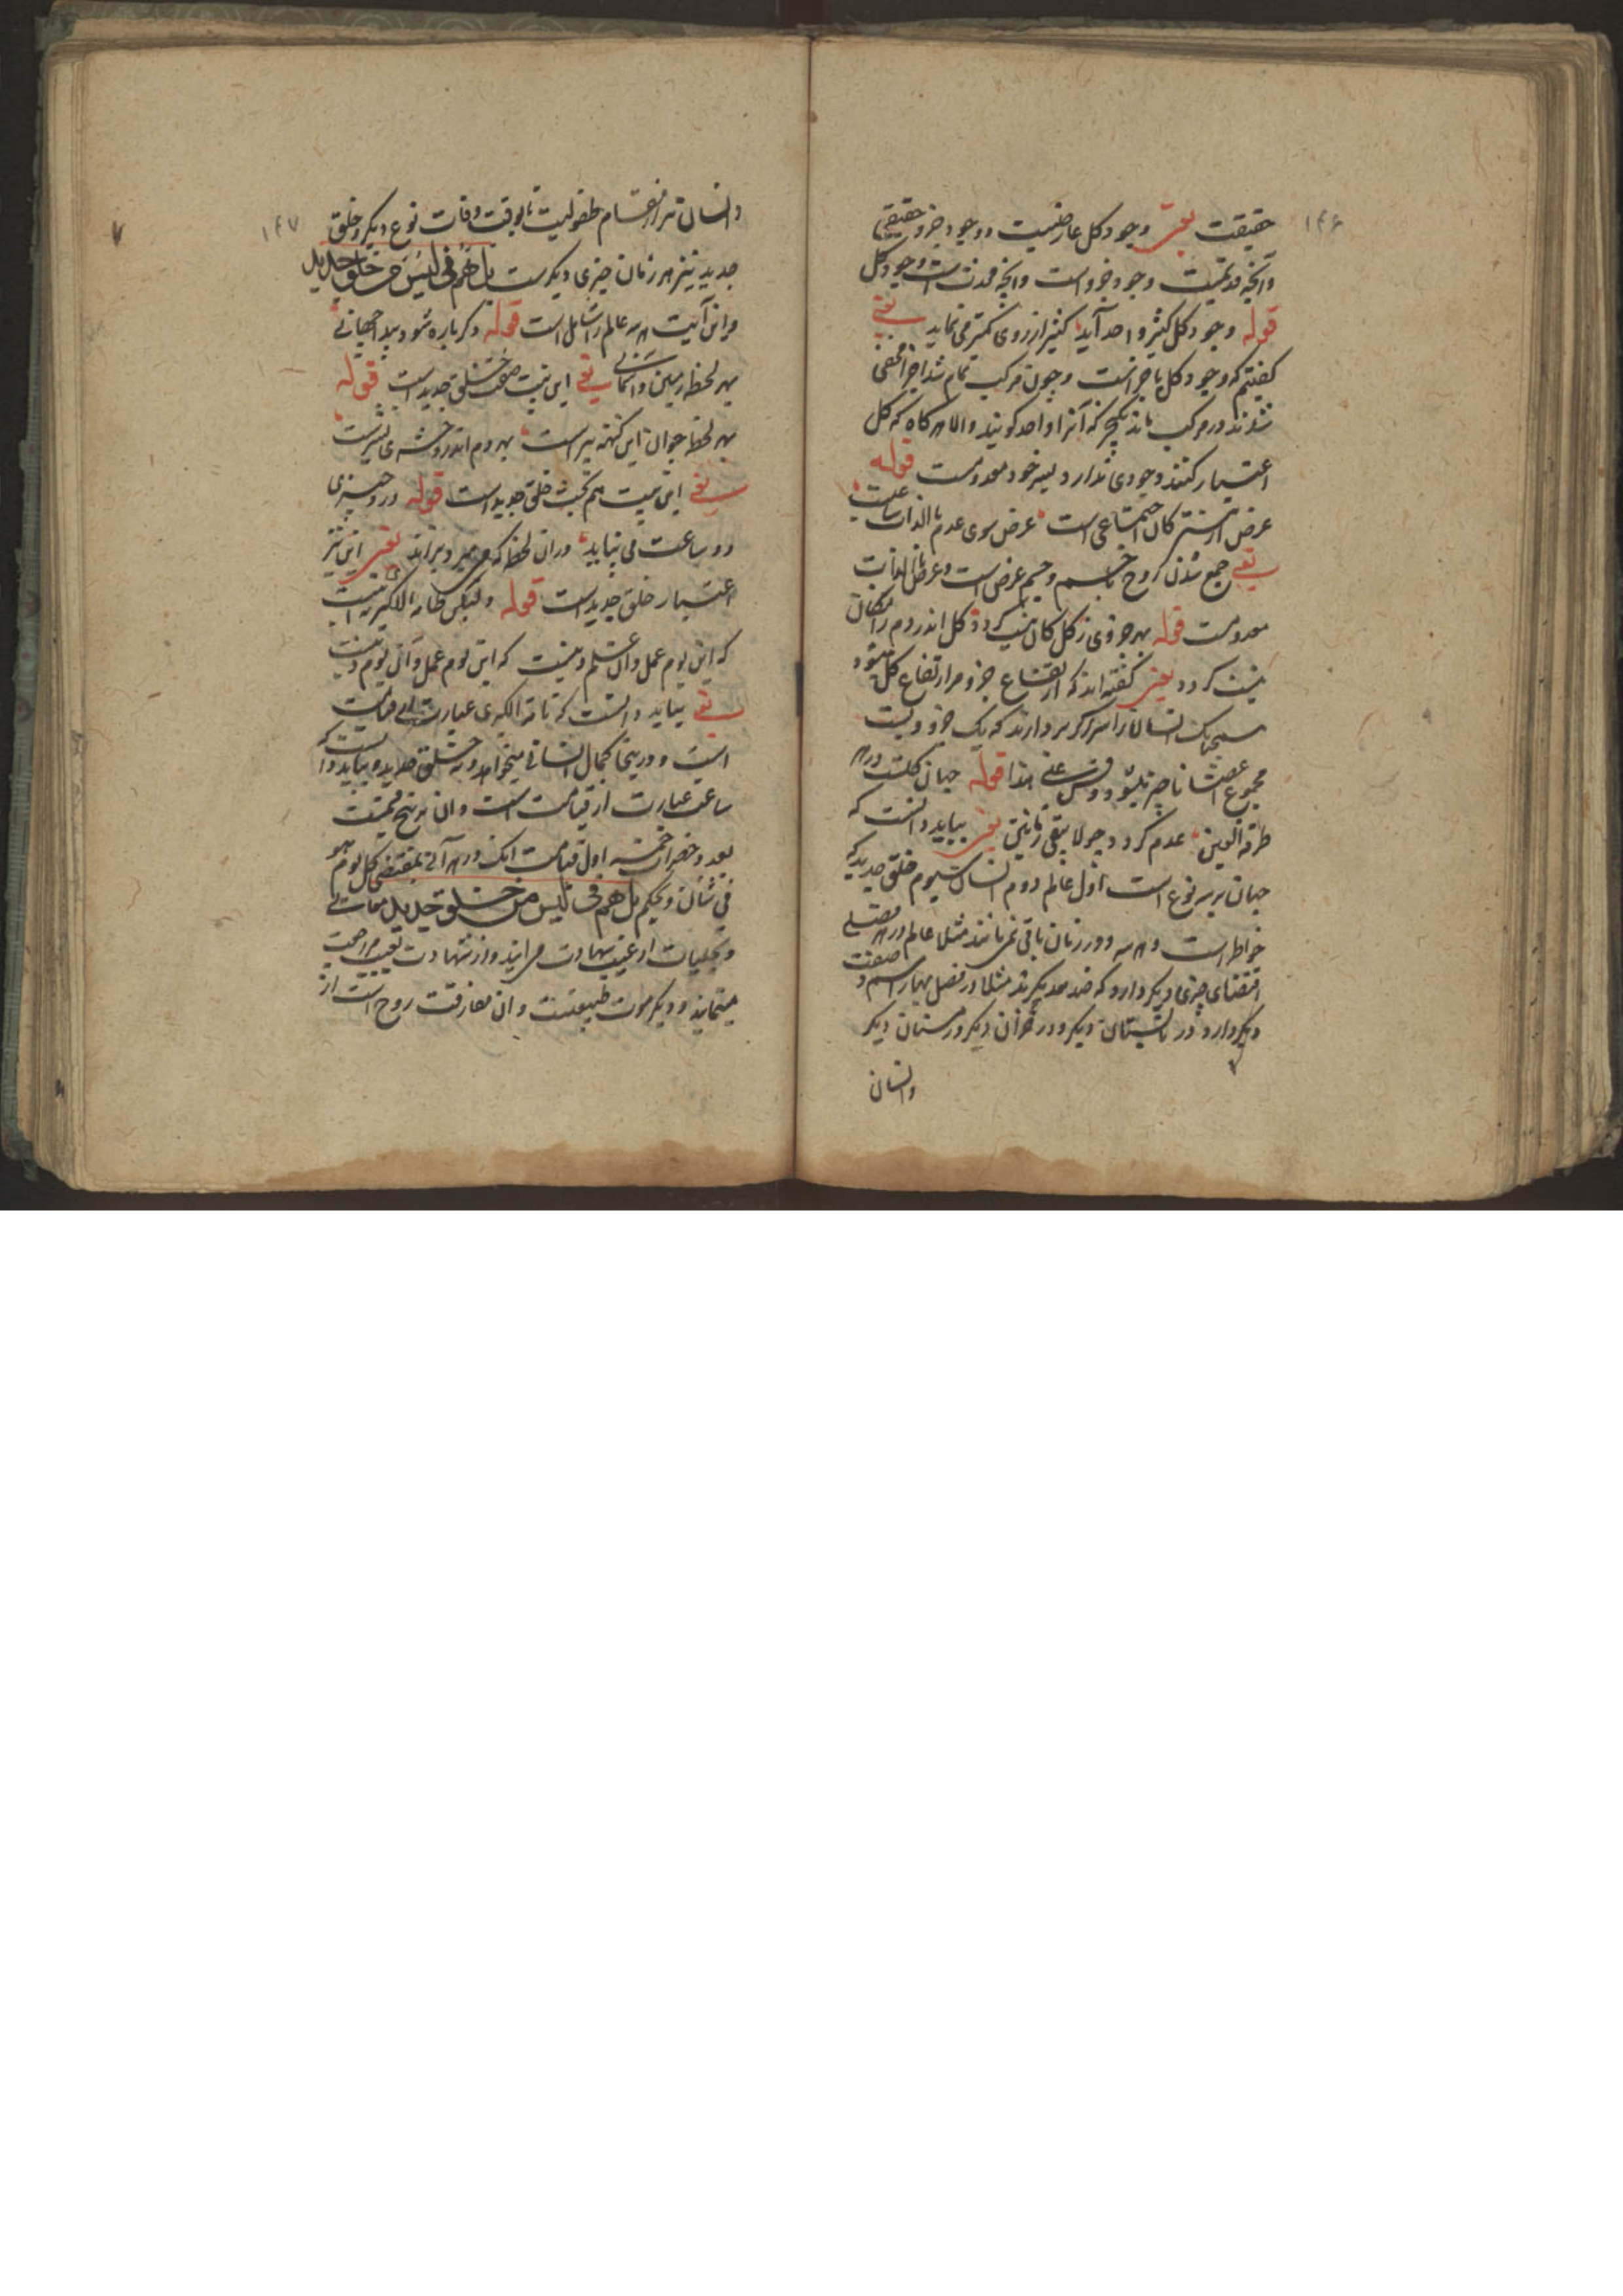 ۱۴۶
حقیقت یعنی وجود کل عارضیست و وجود جزو حقیقی
وآنچه قدیمست وجود جزو است وآنچه محدث است وجود کل
قوله وجود کل کثیر و احد آید کثیر از روی کثرت می نماید یعنی
گفتیم که وجود کل با جزاست و چون مرکب تمام شد اجزا مخفی
شدند و مرکب ماند یکچیز که آنرا واحد کویند والا هرکاه که کل
اعتبار کنند وجودی ندارد لیس خود معدومست قوله
عرض از هستی کان اجتماعی است عرض سوی عدم بالذات ساعیست
یعنی جمع شدن روح با جسم و جسم عرض است و عرض بالذات
معدومست قوله بهر جزوی ز کل کان نیست کردد کل اندر دم ز امکان
نیست کردد یعنی کفته اند که ارتفاع جزو مر ارتفاع کل میشود
همچنانک انسان را سر اگر بردارند که یک جزویست
مجموع اعضا ناچیز میشود وقس علی هذا قوله جهان کلست در هر
طرفة العین عدم کردد و لا یبقی زمانین یعنی بباید دانست که
جهان بر سه نوع است اول عالم دوم انسان سیوم خلق جدید که
خواطر است و هر سه دو زمان باقی نمی مانند مثلا عالم در هر فصلی
اقتضای چیزی دیکر دارد که ضد همدیکرند مثلا در فصل بهار اسم و صفت
دیکر دارد و در تابستان دیکر و در خزان دیکر و زمستان دیکر
وانسان
۱۴۷
وانسان نیز از هنکام طفولیت تا بوقت وفات نوع دیکر و خلق
جدید نیز هر زمان چیزی دیکرست بل هم فی لبس من خلق جدید
و این آیت هر سه عالم را شامل است قوله دکر باره شود پیدا جهانی
بهر لحظه زمین و آسمانی یعنی این بیت صفت خلق جدید است قوله
بهر لحظه جوان این کهنه پیر است بهر دم اندرو حشر و نشیرست
یعنی این بیت هم بحث خلق جدید است قوله درو چیزی
دو ساعت می نپاید در آن لحظه که می میرد بزاید یعنی این نیز
اعتبار خلق جدید است قوله ولیکن طامة الکبری نه این است
که این یوم عمل وان یوم دینست که این یوم عمل و آن یوم دینست
یعنی بباید دانست که طامة الکبری عبارت از قیامت
است و درینجا کمال انسانی میخواهد و نه خلق جدید و بباید دانست که
ساعت عبارت از قیامت است وان بر پنج قسمت
بعدد حضرات خمسه اول قیامت آنک در هر آنی بمقتضی کل یوم هو
فی شان و بحکم بل هم فی لبس من خلق جدید معانی
و تجلیات از غیب بشهادت می آیند و از شهادت بغیب مراجعت
مینمایند و دیکر موت طبیعیست وان مفارقت روح است از